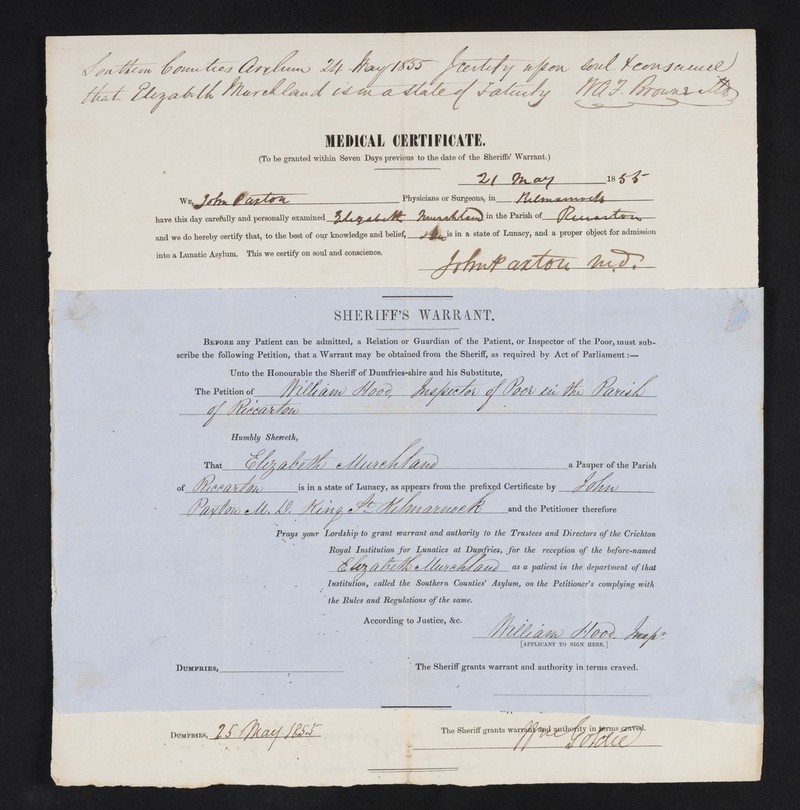 Southern Counties Asylum 24 May 1855 I certify upon soul & conscience
that Elizabeth Murchland is in a state of Fatuity. W A F. Browne MD
MEDICAL CERTIFICATE.
(To be granted within Seven Days previous to the date of the Sheriffs' Warrant.)
21 May 1855
We, John Paxton Physicians or Surgeons, in Kilmarnock
have this day carefully and personally examined Elizabeth Murchland in the Parish of Riccarton
and we do hereby certify that, to the best of our knowledge and belief, she is in a state of Lunacy, and a proper object for admission
into a Lunatic Asylum. This we certify on soul and conscience.
John Paxton M.D.
SHERIFF'S WARRANT.
Before any Patient can be admitted, a Relation or Guardian of the Patient, or Inspector of the Poor, must sub-
scribe the following Petition, that a Warrant may be obtained from the Sheriff, as required by Act of Parliament:—
Unto the Honourable the Sheriff of Dumfries-shire and his Substitute,
The Petition of William Hood, Inspector of Poor in the Parish
of Riccarton
Humbly Sheweth,
That Elizabeth Murchland a Pauper of the Parish
of Riccarton is in a state of Lunacy, as appears from the prefixed Certificate by John
Paxton M. D. King St. Kilmarnock and the Petitioner therefore
Prays your Lordship to grant warrant and authority to the Trustees and Directors of the Crichton
Royal Institution for Lunatics at Dumfries, for the reception of the before-named
Elizabeth Murchland as a patient in the department of that
Institution, called the Southern Counties' Asylum, on the Petitioner's complying with
the Rules and Regulations of the same.
According to Justice, &c.
William Hood. Inspr.
[APPLICANT TO SIGN HERE.]
Dumfries,
The Sheriff grants warrant and authority in terms craved.
Dumfries, 25 May 1855
The Sheriff grants warrant and authority in terms craved.
Goldie